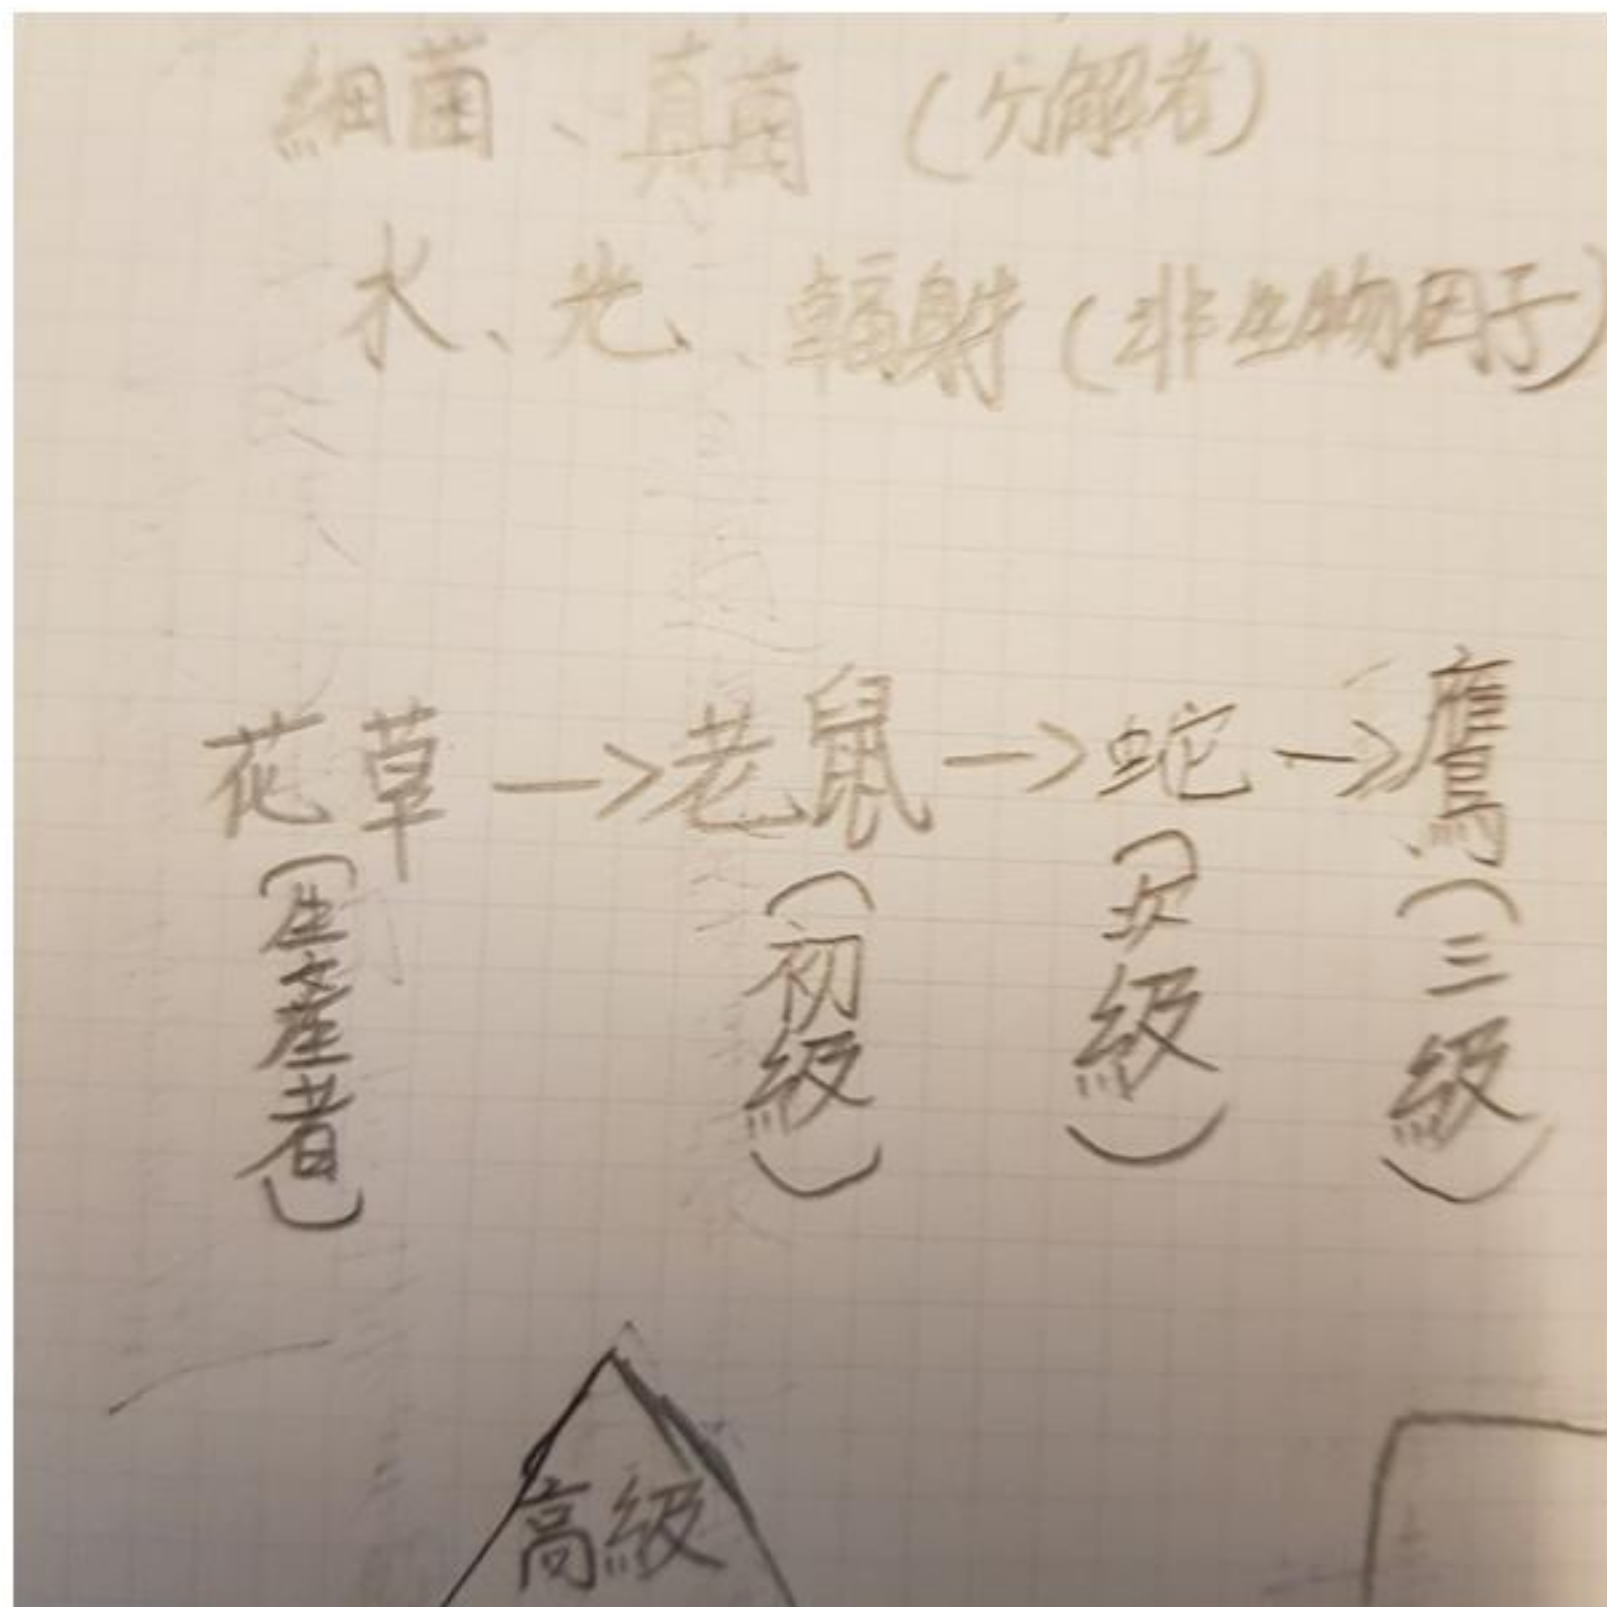 細菌、真菌(分解者)
水、光、輻射(非生物因子)
花草→老鼠→蛇→鷹
(生產者)
(初級)
(次級)
(三級)
高級